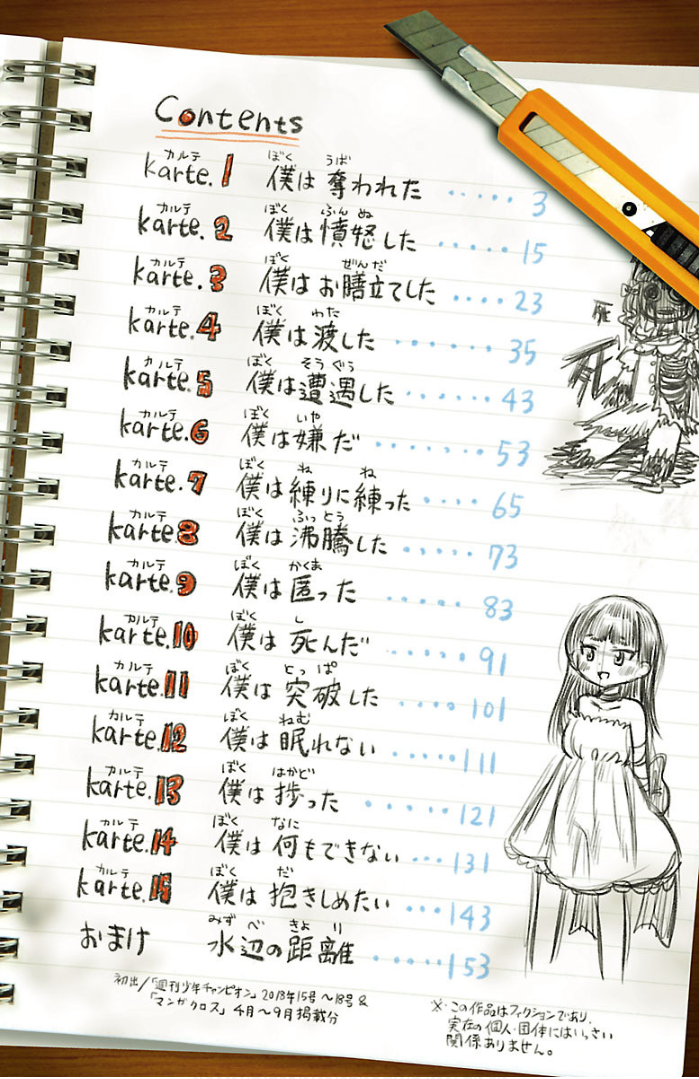 Contents
karte.1 僕は奪われた ..... 3
karte.2 僕は憤怒した ..... 15
karte.3 僕はお膳立てした .... 23
karte.4 僕は渡した ...... 35
karte.5 僕は遭遇した ..... 43
karte.6 僕は嫌だ ....... 53
karte.7 僕は練りに練った .... 65
karte.8 僕は沸騰した .... 73
karte.9 僕は匿った ..... 83
karte.10 僕は死んだ ..... 91
karte.11 僕は突破した .... 101
karte.12 僕は眠れない ..... 111
karte.13 僕は捗った ..... 121
karte.14 僕は何もできない ... 131
karte.15 僕は抱きしめたい ... 143
おまけ 水辺の距離 ..... 153
初出/「週刊少年チャンピオン」2018年15号〜18号&
「マンガクロス」4月〜9月掲載分
※この作品はフィクションであり、
実在の個人・団体にはいっさい
関係ありません。
死